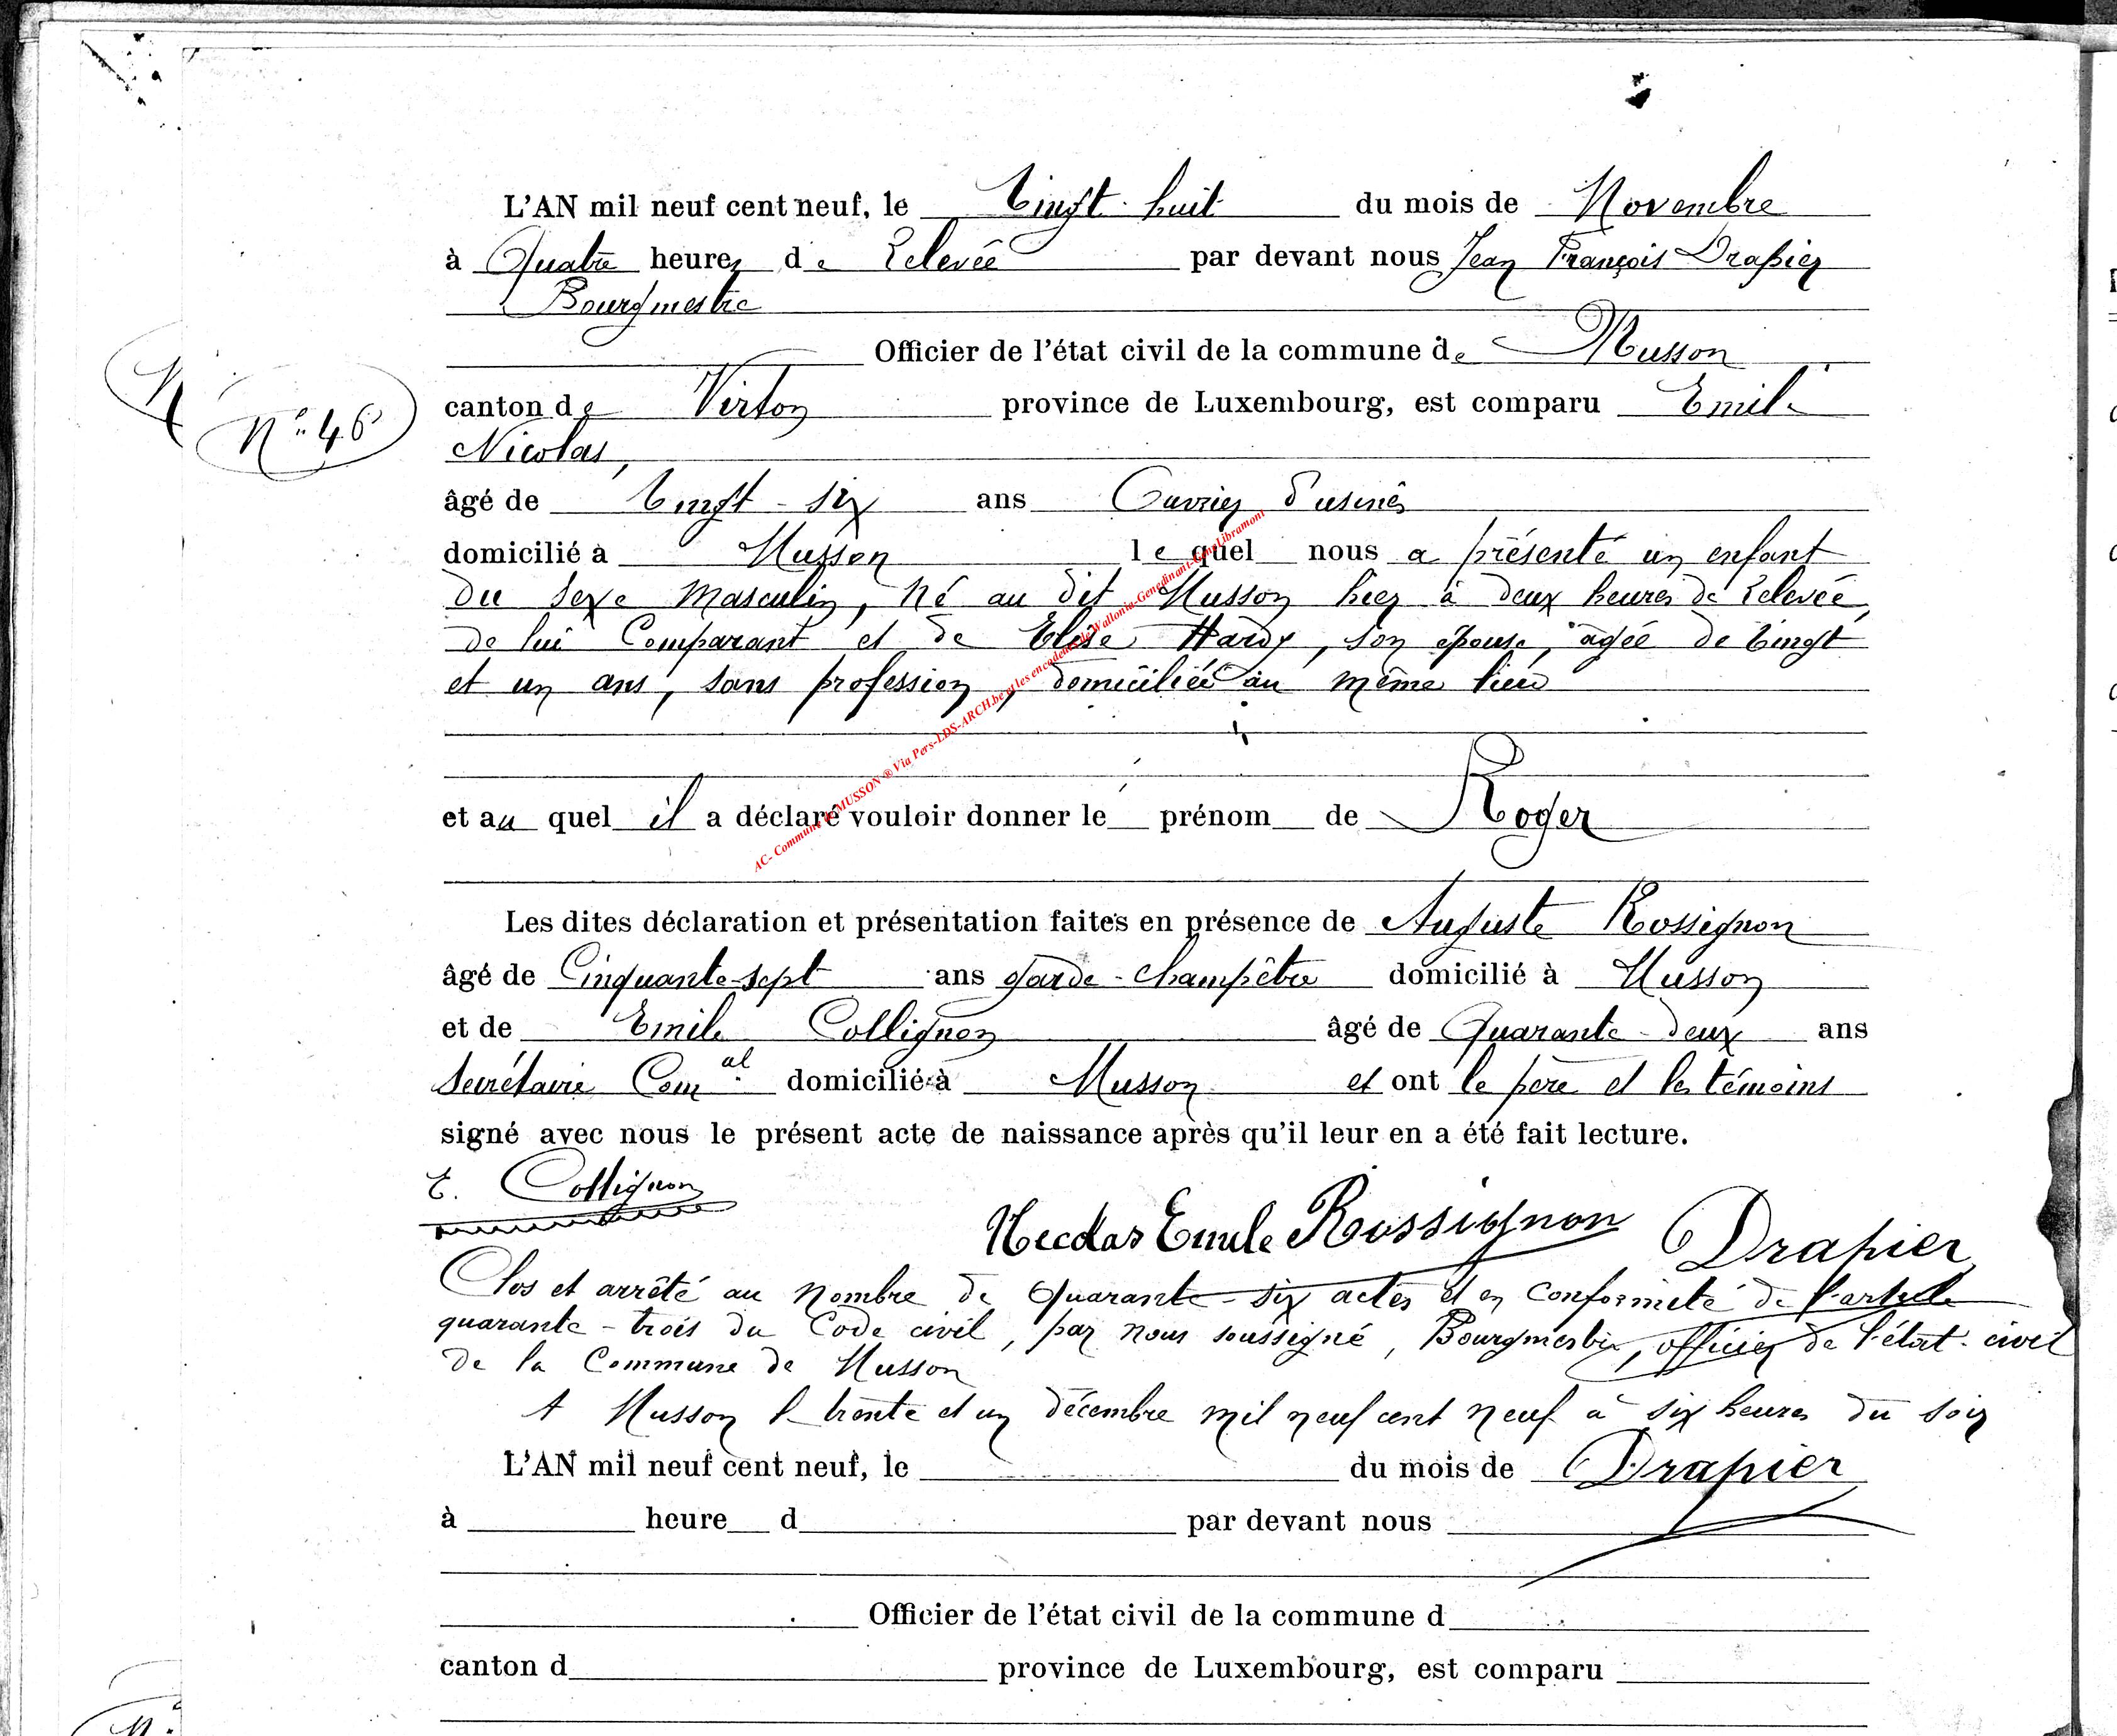 L'AN mil neuf cent neuf, le Vingt-huit du mois de Novembre
à Quatre heures de Relevée par devant nous Jean François Drapier
Bourgmestre
Officier de l'état civil de la commune de Musson
N° 46
canton de Virton province de Luxembourg, est comparu Emile
Nicolas,
âgé de Vingt-six ans Ouvrier d'usines
domicilié à Musson lequel nous a présenté un enfant
du sexe Masculin, né au dit Musson hier à deux heures de Relevée,
de lui Comparant et de Elise Hardy, son épouse, âgée de Vingt
et un ans, sans profession, domiciliée au même lieu
AC- Commune de MUSSON ® Via Pers-LDS-ARCH.be et les encodeurs de Wallonia-Genedinant-GeneLibramont
et au quel il a déclaré vouloir donner le prénom de Roger
Les dites déclaration et présentation faites en présence de Auguste Rossignon
âgé de Cinquante-sept ans garde-champêtre domicilié à Musson
et de Emile Collignon âgé de Quarante-deux ans
Secrétaire Com.al domicilié à Musson et ont le père et les témoins
signé avec nous le présent acte de naissance après qu'il leur en a été fait lecture.
E. Collignon
Nicolas Emile Rossignon Drapier
Clos et arrêté au nombre de Quarante-six actes et en conformité de l'article
quarante-trois du Code civil, par nous soussigné, Bourgmestre, officier de l'état-civil
de la Commune de Musson
A Musson le trente et un décembre mil neuf cent neuf à six heures du soir
L'AN mil neuf cent neuf, le du mois de Drapier
à heure d par devant nous
Officier de l'état civil de la commune d
canton d province de Luxembourg, est comparu